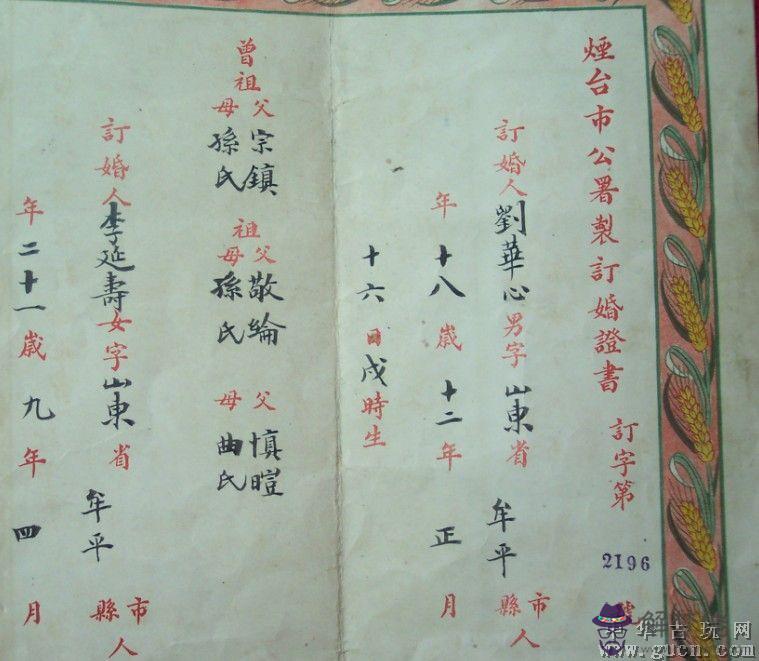 煙台市公署製訂婚證書 訂字第 2196 號
訂婚人劉華心男字 山東省 牟平 市縣人
年十八歲十二年 正 月
十六日戌時生
曾祖父宗鎮 祖父敬綸 父慎暟
母孫氏 母孫氏 母曲氏
訂婚人李延壽女字 山東省 牟平 市縣人
年二十一歲九年 四 月
华古玩网
www.gucn.com